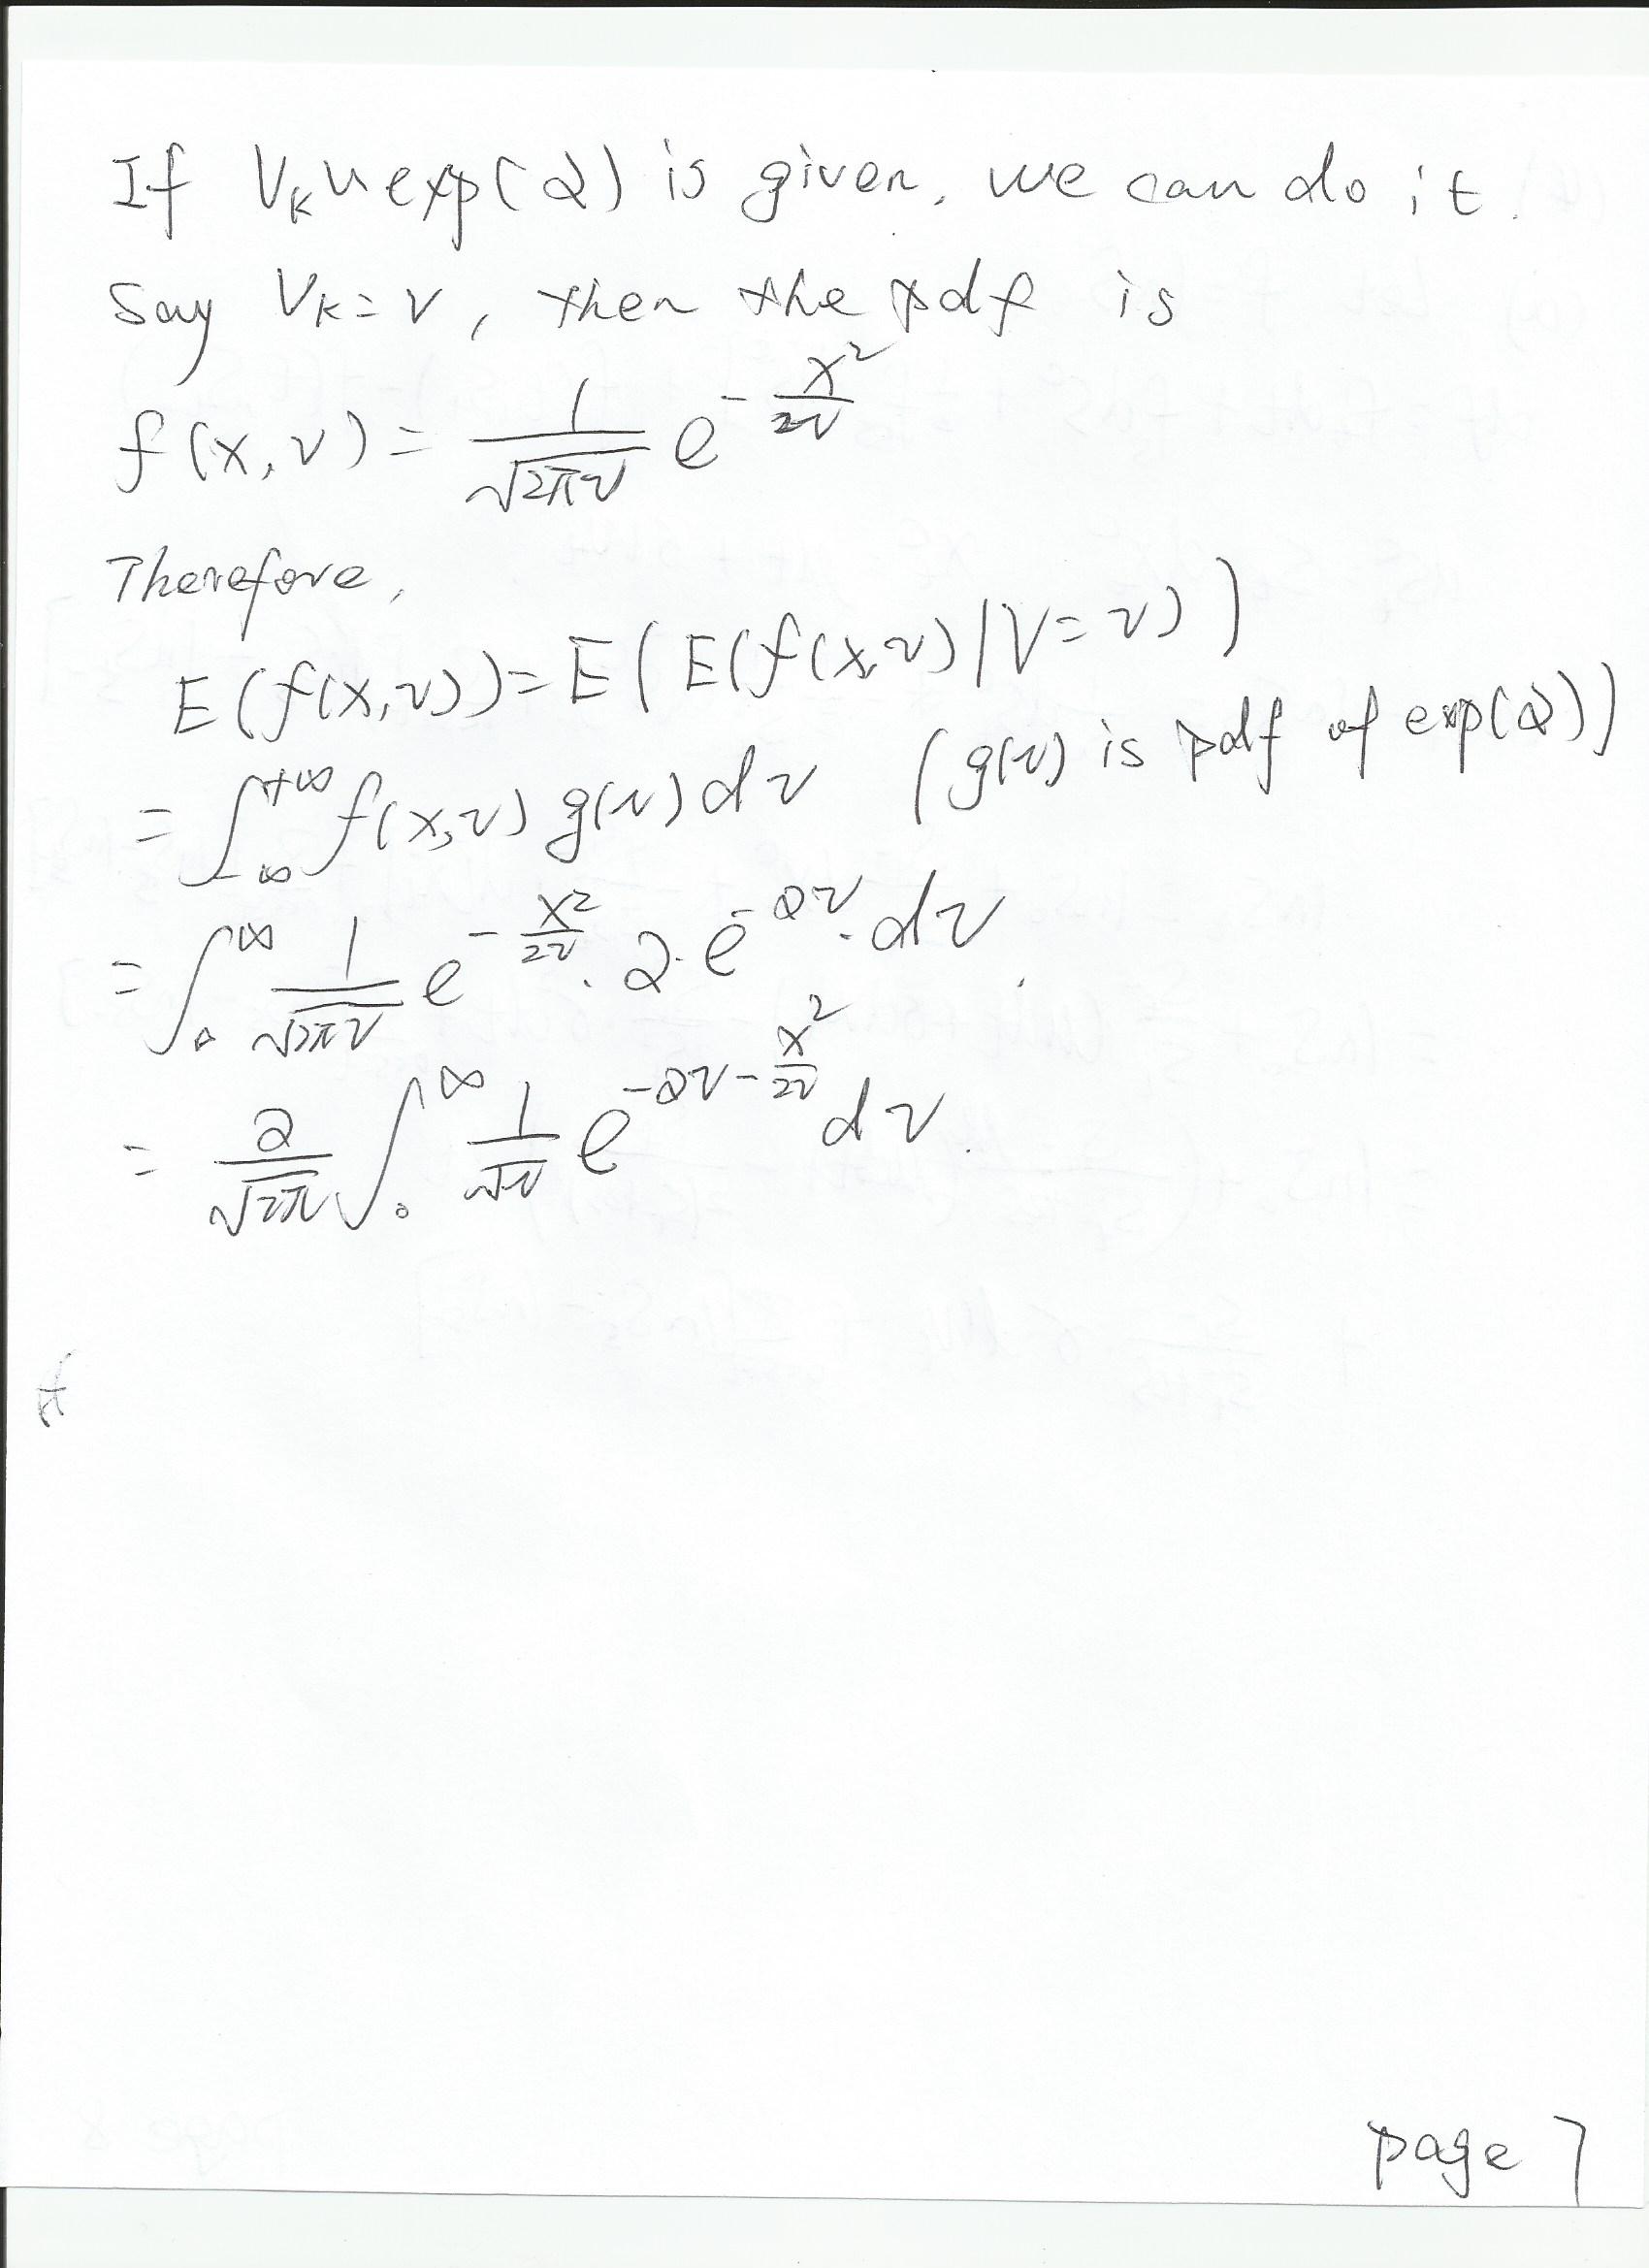 If V_k ~ exp(2) is given, we can do it.
Say V_k = v, then the pdf is
f(x, v) = \frac{1}{\sqrt{2πv}} e^{-\frac{x^2}{2v}}
Therefore,
E(f(x,v)) = E(E(f(x,v)|V=v))
= ∫_{-∞}^{+∞} f(x,v) g(v) dv (g(v) is pdf of exp(2))
= ∫_0^∞ \frac{1}{\sqrt{2πv}} e^{-\frac{x^2}{2v}} · 2 · e^{-2v} · dv.
= \frac{2}{\sqrt{2π}} ∫_0^∞ \frac{1}{\sqrt{v}} e^{-2v-\frac{x^2}{2v}} dv.
page 7